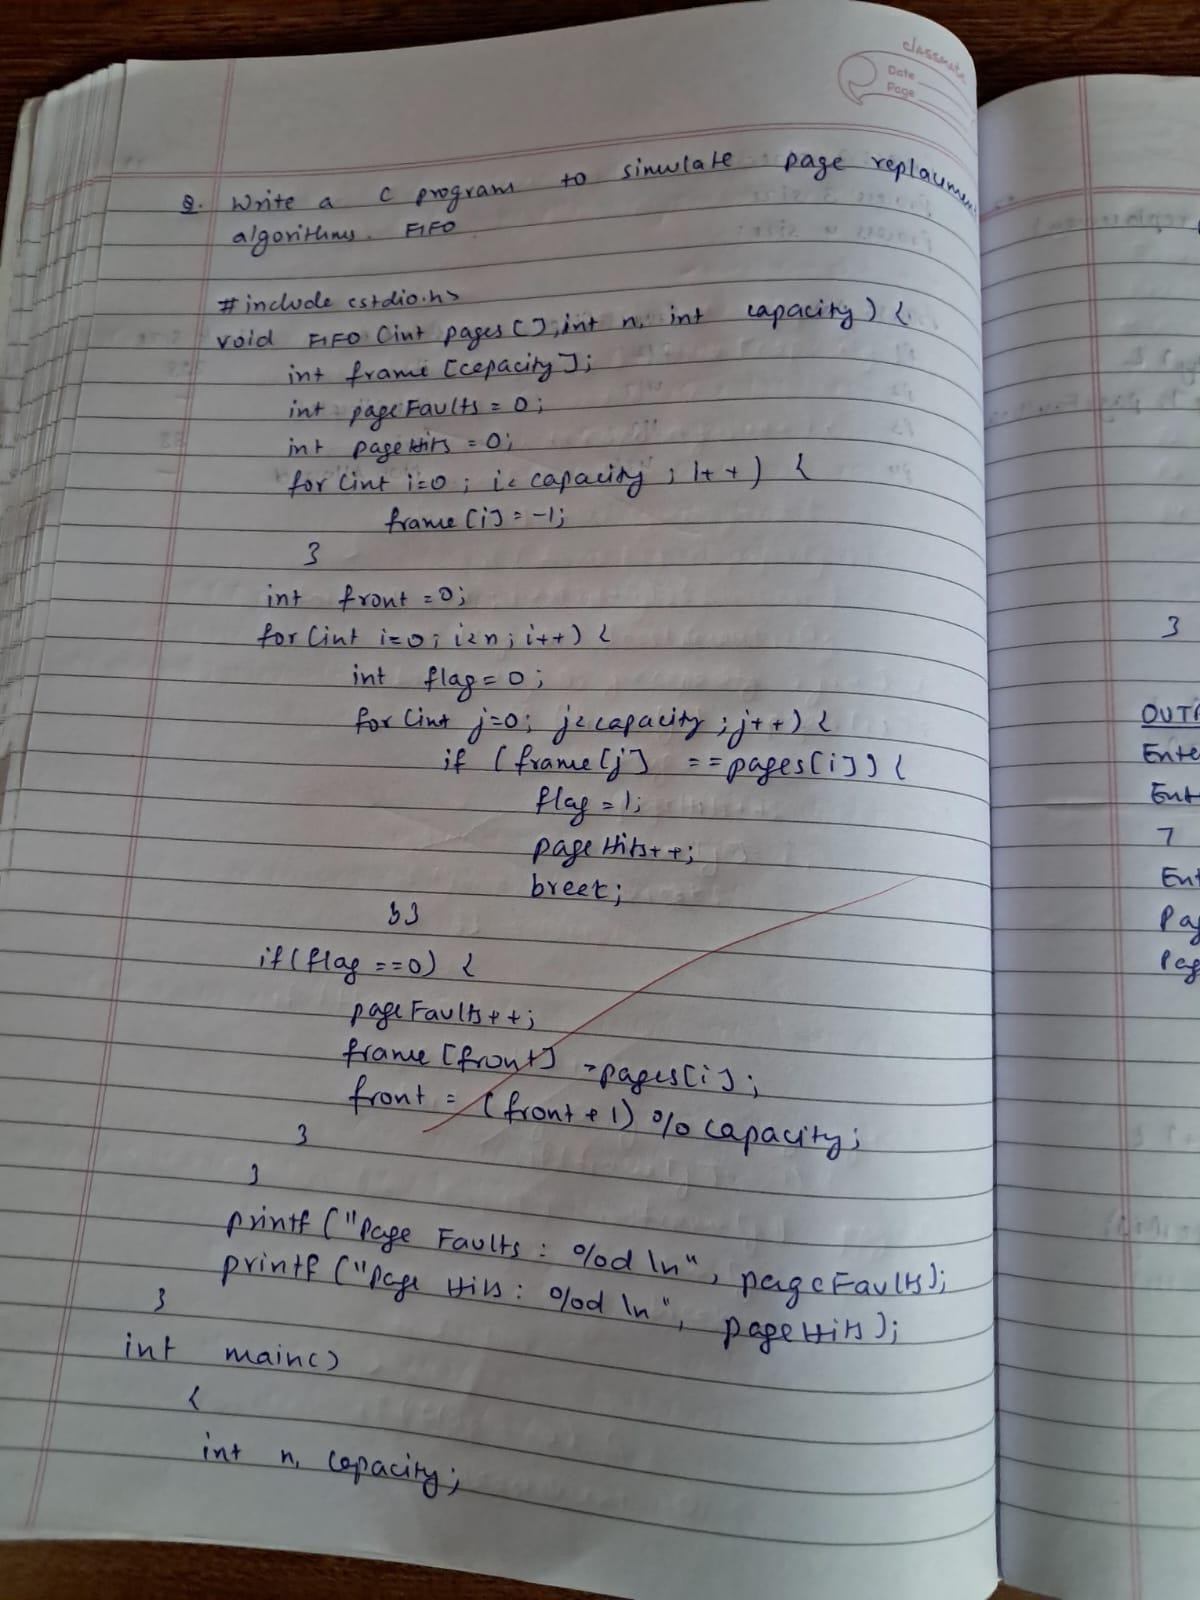 classmate
Date
Page
Q. Write a C program to simulate page replacement
algorithms. FIFO
#include <stdio.h>
void FIFO (int pages[], int n, int capacity) {
int frame [capacity];
int pageFaults = 0;
int pageHits = 0;
for (int i=0; i< capacity; i++) {
frame[i] = -1;
}
int front = 0;
for (int i=0; i<n; i++) {
int flag = 0;
for (int j=0; j<capacity; j++) {
if (frame[j] == pages[i]) {
flag = 1;
pageHits++;
break;
}}
if (flag ==0) {
pageFaults++;
frame [front] = pages[i];
front = (front + 1) % capacity;
}
}
printf ("Page Faults : %d \n", pageFaults);
printf ("Page Hits : %d \n", pageHits);
}
int main()
{
int n, capacity;
3
Ente
Ent
7
Ent
Pag
Pag